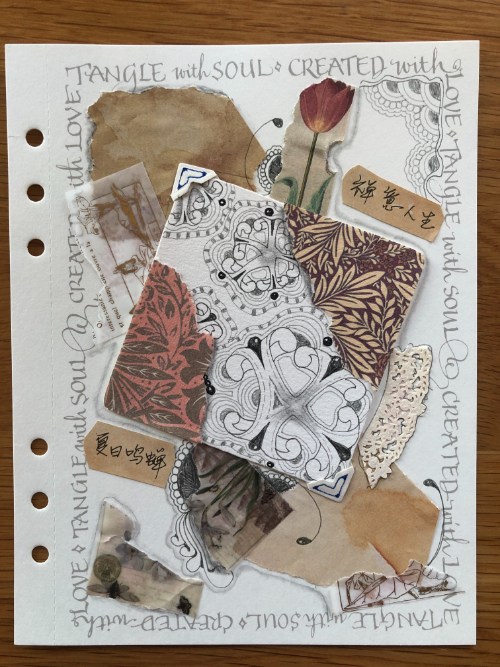 TANGLE with SOUL ⋄ CREATED with
LOVE ⋄ TANGLE with SOUL @ CREATED with LOVE
TANGLE with SOUL ⋄ CREATED with
LOVE ⋄ TANGLE with SOUL @ CREATED with LOVE
禅意人生
夏日鸣蝉